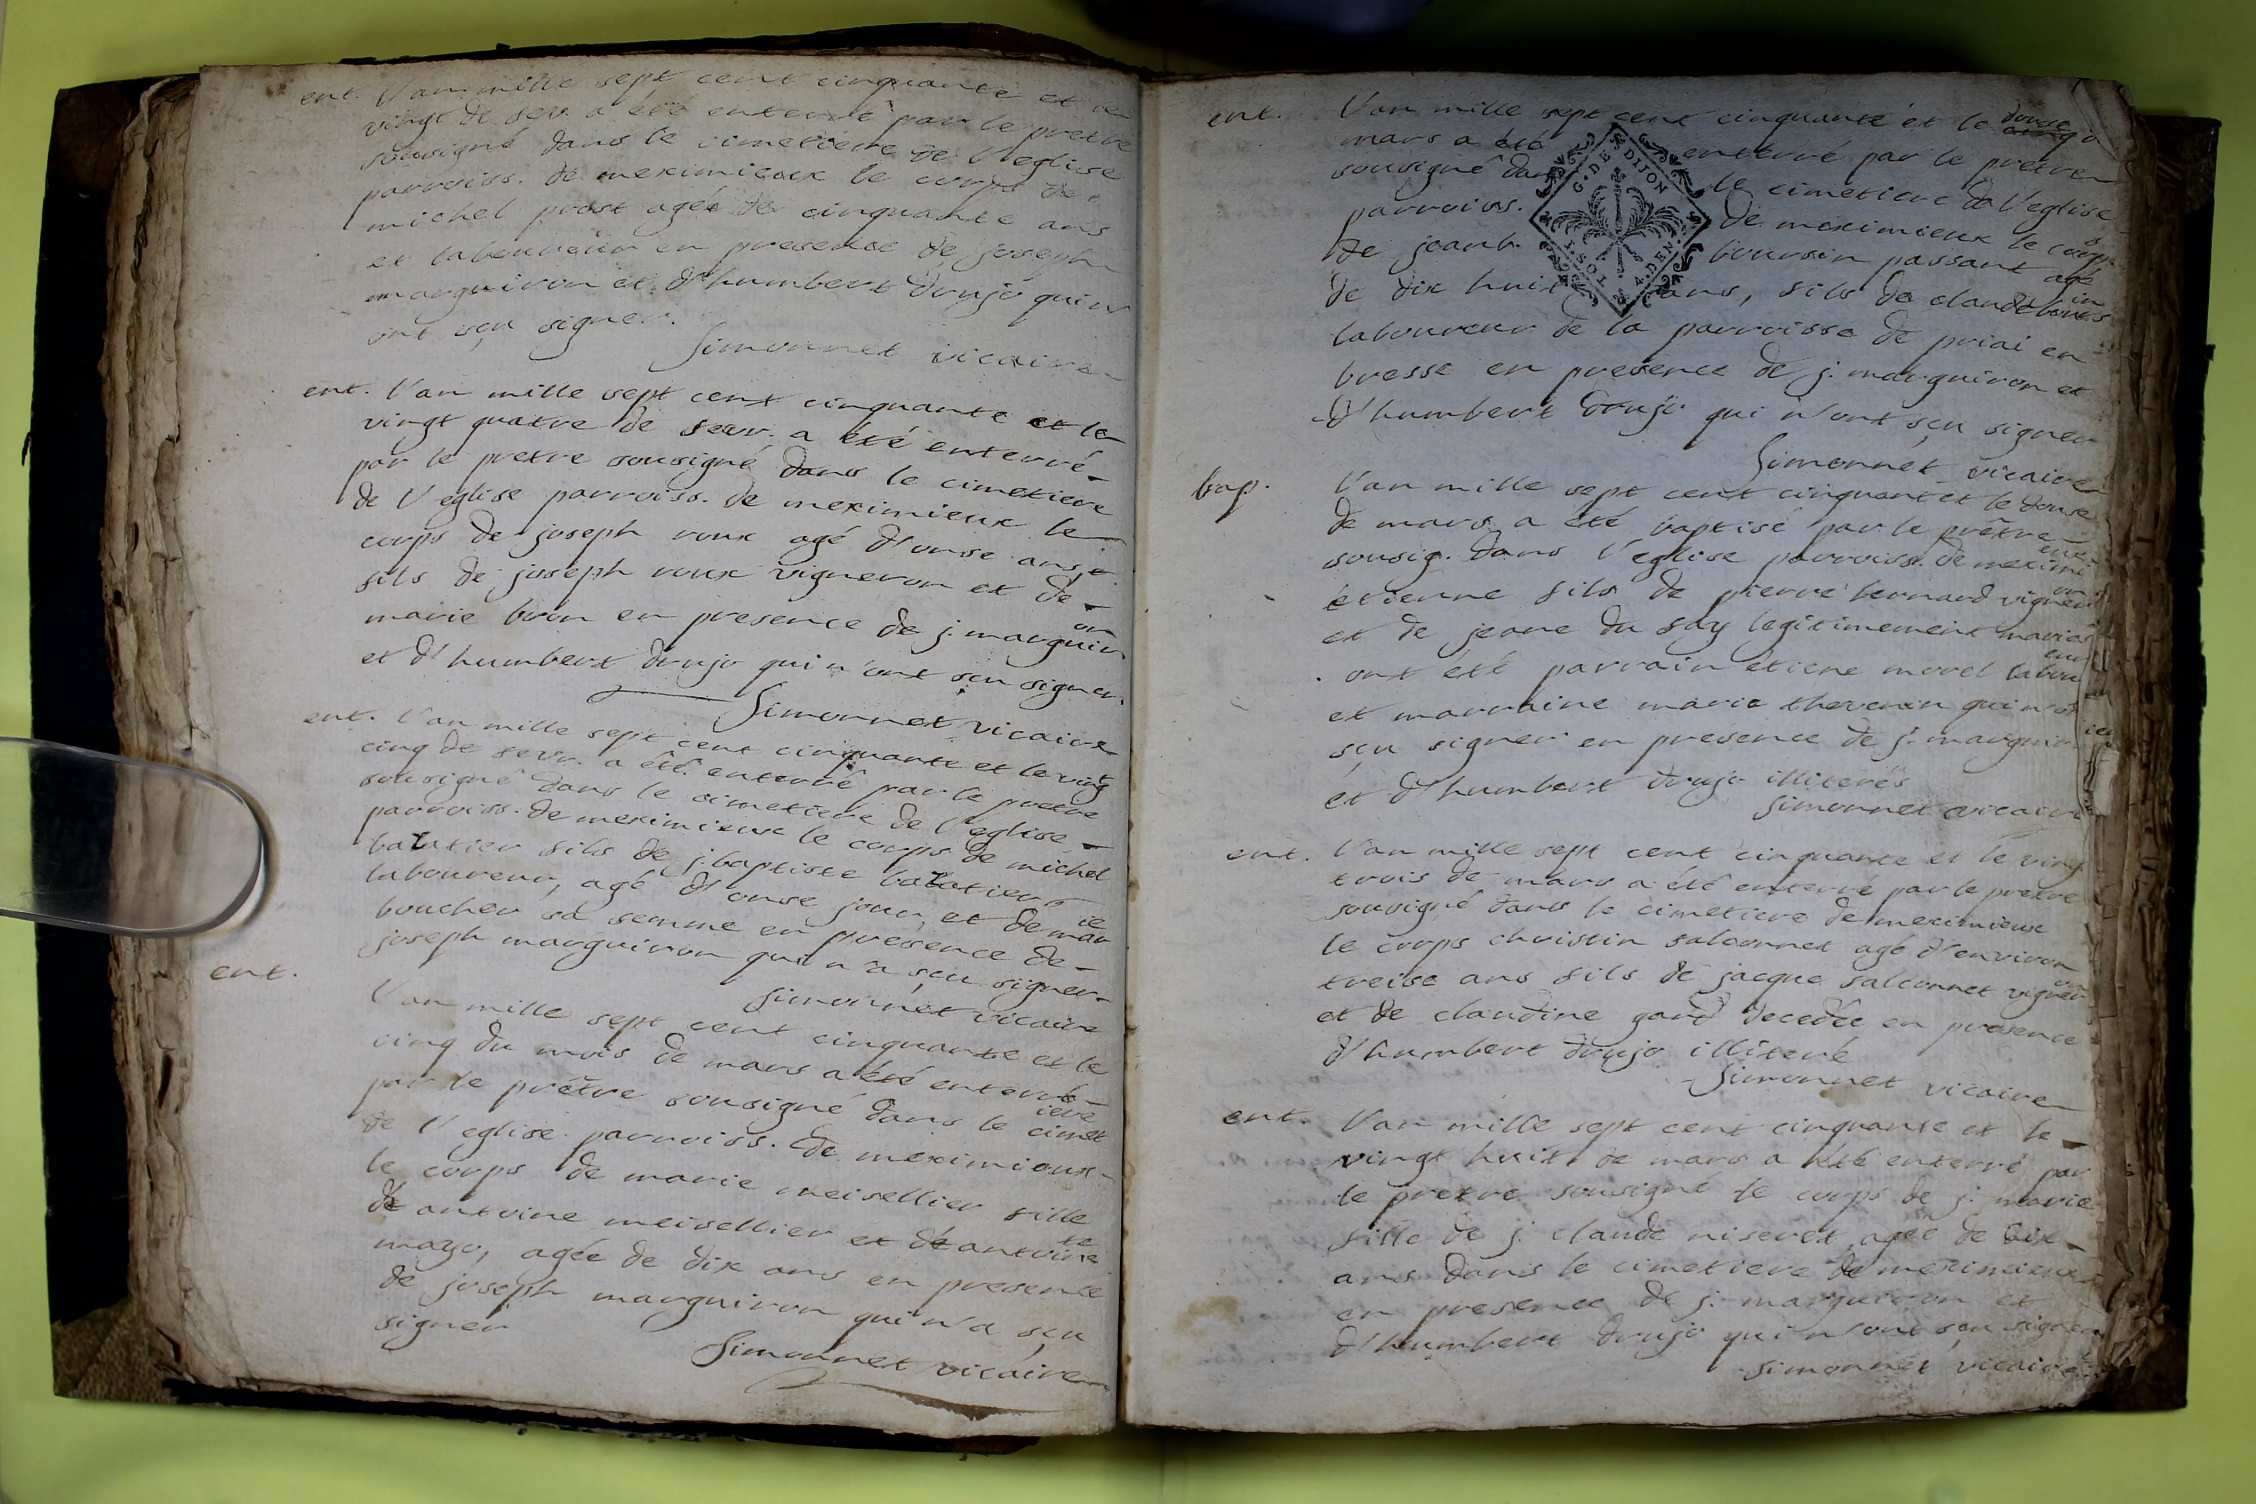 ent. l'an mille sept cent cinquante et le
vingt de fevr. a été enterré par le pretre
sousigné dans le cimetiere de l'eglise
parroiss. de meximieux le corps de
michel prost agé de cinquante ans
et laboureur en presence de joseph
marguiron et d'humbert drujo qui n'
ont sçu signer.
Simonnet vicaire
ent. l'an mille sept cent cinquante et le
vingt quatre de fevr. a été enterré
par le pretre sousigné dans le cimetiere
de l'eglise parroiss. de meximieux le
corps de joseph roux agé d'onse ans
fils de joseph roux vigneron et de
marie bron en presence de j. marguiron
et d'humbert drujo qui n'ont sçu signer.
Simonnet vicaire
ent. l'an mille sept cent cinquante et le vingt
cinq de fevr. a été enterré par le pretre
sousigné dans le cimetiere de l'eglise
parroiss. de meximieux le corps de michel
balatier fils de j. baptiste balatier
laboureur, agé d'onse jour, et de marie
boucher sa femme en presence de
joseph marguiron qui n'a sçu signer
Simonnet vicaire
ent. l'an mille sept cent cinquante et le
cinq du mois de mars a été enterré
par le prétre sousigné dans le cimetiere
de l'eglise parroiss. de meximieux
le corps de marie meisellier fille
de antoine meisellier et de antoinette
mazo, agée de dix ans en presence
de joseph marguiron qui n'a sçu
signer
Simonnet vicaire
ent. l'an mille sept cent cinquante et le douse
mars a été enterré par le pretre
sousigné dans le cimetiere de l'eglise
parroiss. de meximieux le corps
de jean b. boursin passant agé
de dix huit ans, fils de claude boursin
laboureur de la parroisse de priai en
bresse en presence de j. marguiron et
d'humbert drujo qui n'ont sçu signer
Simonnet vicaire
G. DE DIJON
4. DEN.
1. SOL
bap. l'an mille sept cent cinquant et le douse
de mars a été baptisé par le prêtre
sousig. dans l'eglise parroiss. de meximieux
étienne fils de pierre bernard vigneron
et de jeane du say legitimement mariés
ont été parrain etiene morel laboureur
et marraine marie thevenin qui n'ont
sçu signer en presence de j. marguiron
et d'humbert drujo illiterés
Simonnet vicaire
ent. l'an mille sept cent cinquante et le vingt
trois de mars a été enterré par le pretre
sousigné dans le cimetiere de meximieux
le corps christin falconnet agé d'environ
treise ans fils de jacque falconnet vigneron
et de claudine gand decedée en presence
d'humbert drujo illiteré
Simonnet vicaire
ent. l'an mille sept cent cinquante et le
vingt huit de mars a été enterré par
le pretre sousigné le corps de j. marie
fille de j. claude niseret agée de dix
ans dans le cimetiere de meximieux
en presence de j. marguiron et
d'humbert drujo qui n'ont sçu signer
Simonnet vicaire